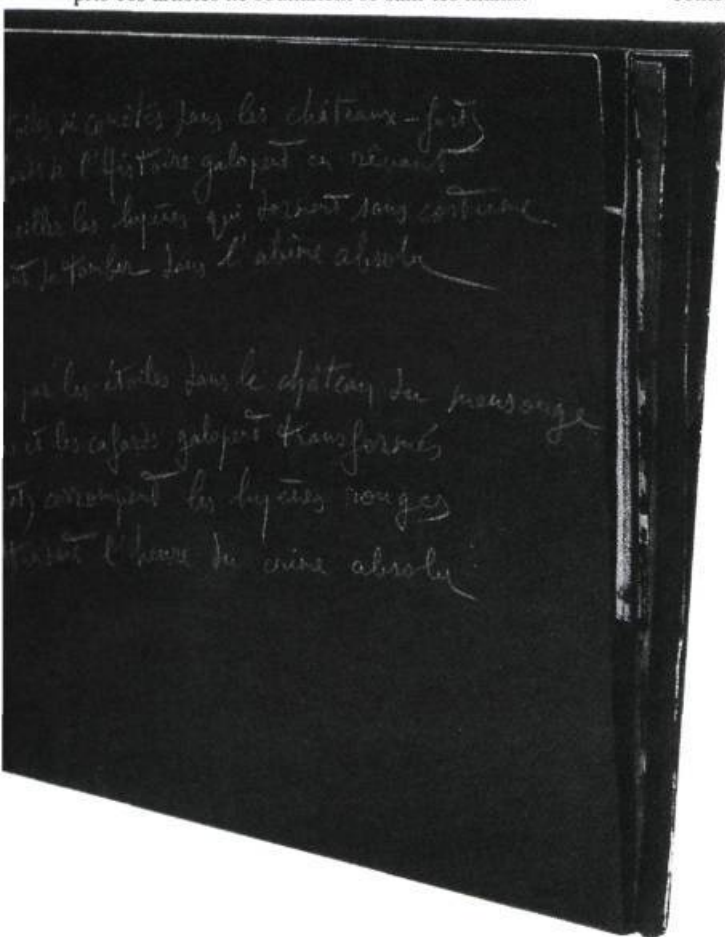 ni comètes dans les châteaux-forts
l'Histoire galopent en rêvant
les hyènes qui dorment sans costume
tomber dans l'abîme absolu
par les étoiles dans le château du mensonge
et les cafards galopent transformés
corrompent les hyènes rouges
l'heure du crime absolu